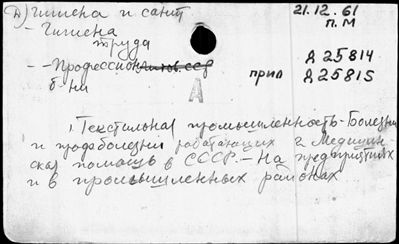 Д) Гигиена и санит
21.12.61
П.М
- Гигиена
труда
- - Профессион
б-ни
Д 25814
прил Д 25815
А
1. Текстильная промышленность - Болезни
и профболезни работающих 2. Медицин-
ская помощь в СССР. - На предприятиях
и в промышленных районах